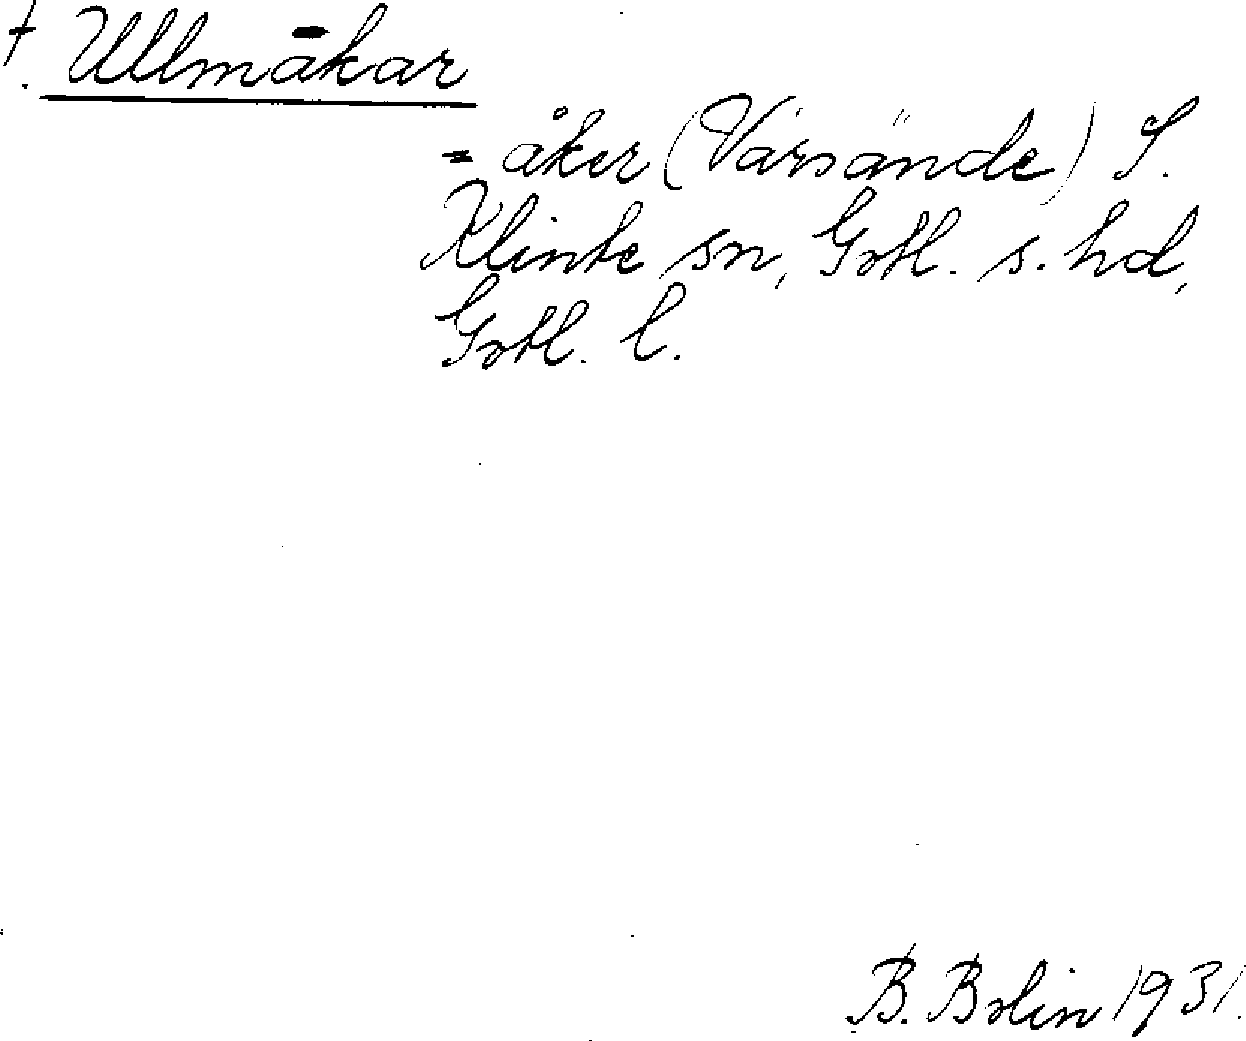 f. Ullmåkar
= åker (Värsände) S.
Klinte sn, Gotl. s. hd,
Gotl. l.
B. Bolin 1931.